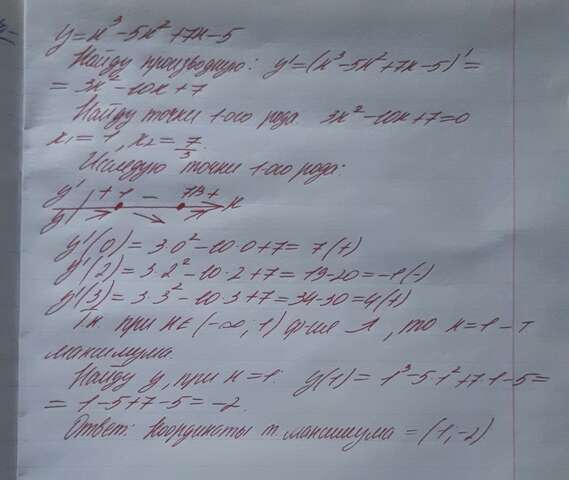 y = x³ - 5x² + 7x - 5
Найду производную: y' = (x³ - 5x² + 7x - 5)' =
= 3x² - 10x + 7
Найду точки 1-ого рода: 3x² - 10x + 7 = 0
x₁ = 1, x₂ = 7/3
Исследую точки 1-ого рода:
y' + 1 - 7/3 + x
y
y'(0) = 3·0² - 10·0 + 7 = 7 (+)
y'(2) = 3·2² - 10·2 + 7 = 19 - 20 = -1 (-)
y'(3) = 3·3² - 10·3 + 7 = 34 - 30 = 4 (+)
Т.к. при x ∈ (-∞; 1) ф-ция ↗, то x = 1 - т.
максимума.
Найду y, при x = 1: y(1) = 1³ - 5·1² + 7·1 - 5 =
= 1 - 5 + 7 - 5 = -2.
Ответ: координаты т. максимума = (1; -2)